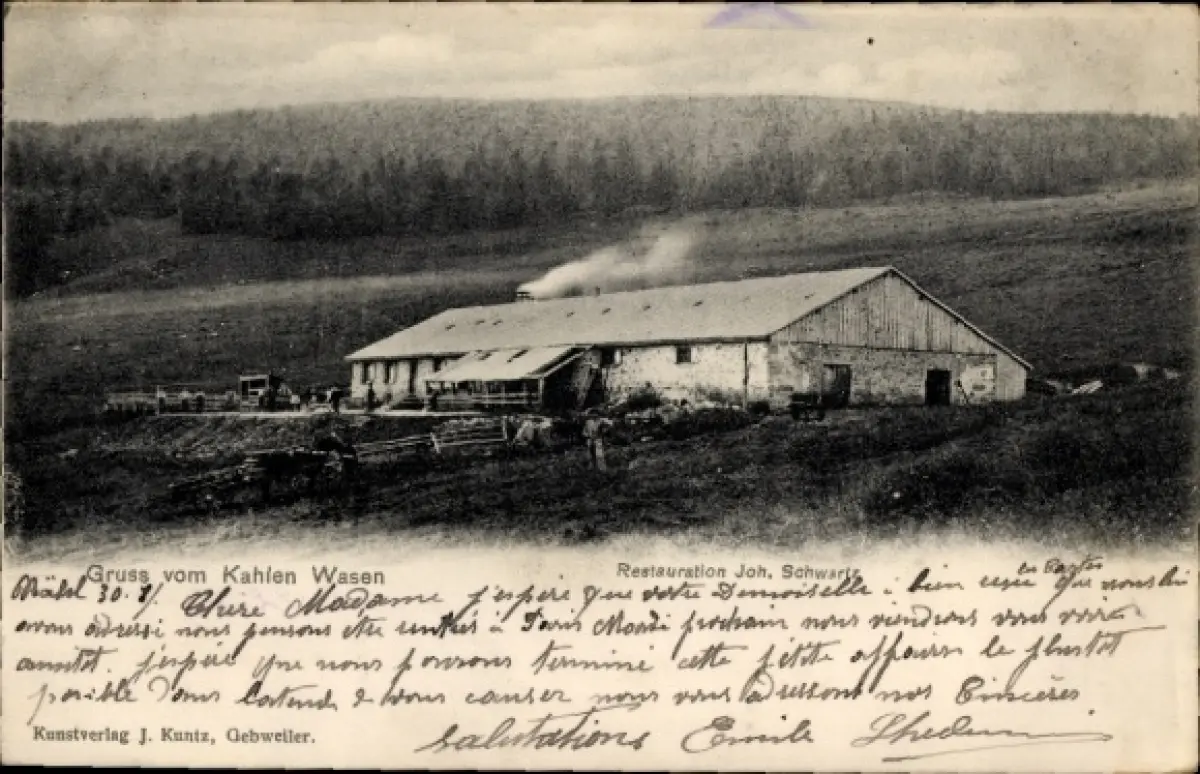 Gruss vom Kahlen Wasen
Restauration Joh. Schwartz
30. Chère Madame j'espère que votre Demoiselle à bien les Cartes que nous lui
avons adressé nous pensons être rentrés à Paris Mardi prochain nous viendrons vous voir
aussitôt. j'espère que nous pouvons terminé cette petite affaire le plustot
posible Dans l'actende de vous causer nous vous adressons nos Cincères
Kunstverlag J. Kuntz, Gebweiler.
Salutations Emile